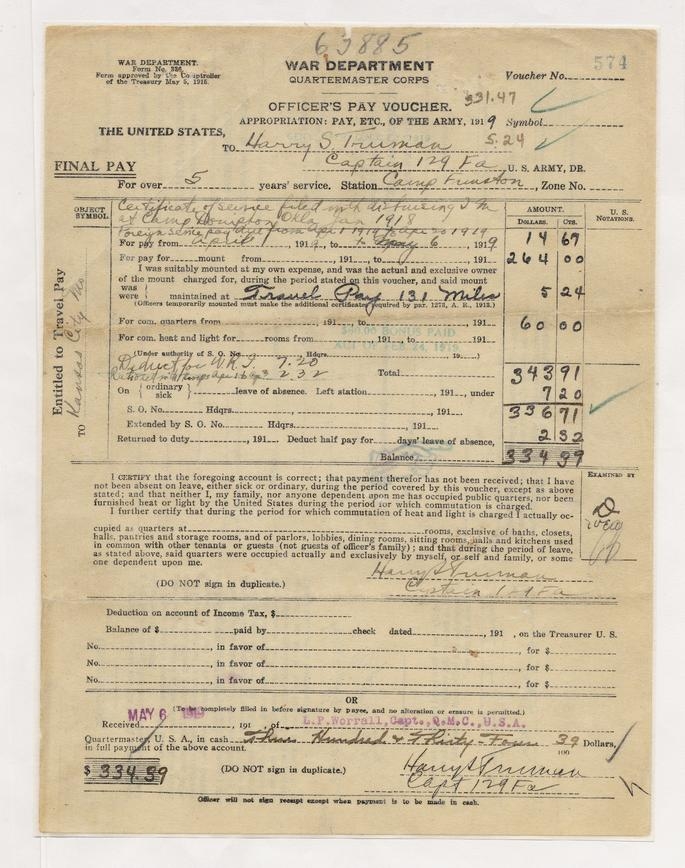 63885
WAR DEPARTMENT.
Form No. 336.
Form approved by the Comptroller
of the Treasury May 5, 1915.
WAR DEPARTMENT
QUARTERMASTER CORPS
Voucher No. 574
OFFICER'S PAY VOUCHER.
331.47
APPROPRIATION: PAY, ETC., OF THE ARMY, 1919 Symbol
5.24
THE UNITED STATES,
TO Harry S. Truman
Captain 129 Fa U. S. ARMY, DR.
FINAL PAY
For over 5 years' service. Station Camp Funston, Zone No.
OBJECT SYMBOL
AMOUNT.
DOLLARS. CTS.
U. S. NOTATIONS.
Certificate of service filed with disbursing
at Camp Doniphan Okla Jan 1918
Foreign service pay due from Apr 1 1919 to Apr 20 1919
14 67
For pay from April 1, 1919, to May 6 1919
264 00
For pay for mount from , 191 , to , 191
I was suitably mounted at my own expense, and was the actual and exclusive owner
of the mount charged for, during the period stated on this voucher, and said mount
was
were } maintained at Travel Pay 131 Miles 5 24
(Officers temporarily mounted must make the additional certificates required by par. 1273, A. R., 1913.)
For com. quarters from , 191 , to , 191 60 00
$60.00 BONUS PAID
ACT OF FEB. 24, 1919
For com. heat and light for rooms from , 191 , to , 191
(Under authority of S. O. No. , Hdqrs. , 19 .)
Deduct for W.R.I. 7.20
2 32
Total 343 91
On { ordinary
sick } leave of absence. Left station , 191 , under 7 20
S. O. No. , Hdqrs. , 191 336 71
Extended by S. O. No. , Hdqrs. , 191 .
2 32
Returned to duty , 191 . Deduct half pay for days' leave of absence,
Balance 334 39
Entitled to Travel Pay
TO Kansas City Mo
I CERTIFY that the foregoing account is correct; that payment therefor has not been received; that I have
not been absent on leave, either sick or ordinary, during the period covered by this voucher, except as above
stated; and that neither I, my family, nor anyone dependent upon me has occupied public quarters, nor been
furnished heat or light by the United States during the period for which commutation is charged.
I further certify that during the period for which commutation of heat and light is charged I actually oc-
cupied as quarters at rooms, exclusive of baths, closets,
halls, pantries and storage rooms, and of parlors, lobbies, dining rooms, sitting rooms, halls and kitchens used
in common with other tenants or guests (not guests of officer's family); and that during the period of leave,
as stated above, said quarters were occupied actually and exclusively by myself, or self and family, or some
one dependent upon me.
EXAMINED BY
Harry S Truman
(DO NOT sign in duplicate.)
Captain 129 Fa
Deduction on account of Income Tax, $
Balance of $ paid by check dated , 191 , on the Treasurer U. S.
No. , in favor of , for $
No. , in favor of , for $
No. , in favor of , for $
OR
(To be completely filled in before signature by payee, and no alteration or erasure is permitted.)
Received MAY 6 1919 , 191 , of L.P.Worrall, Capt., Q.M.C., U.S.A.
Quartermaster, U. S. A., in cash Three Hundred & Thirty-Four 39/100 Dollars,
in full payment of the above account.
$ 334.39
(DO NOT sign in duplicate.)
Harry S Truman
Capt 129 Fa
Officer will not sign receipt except when payment is to be made in cash.